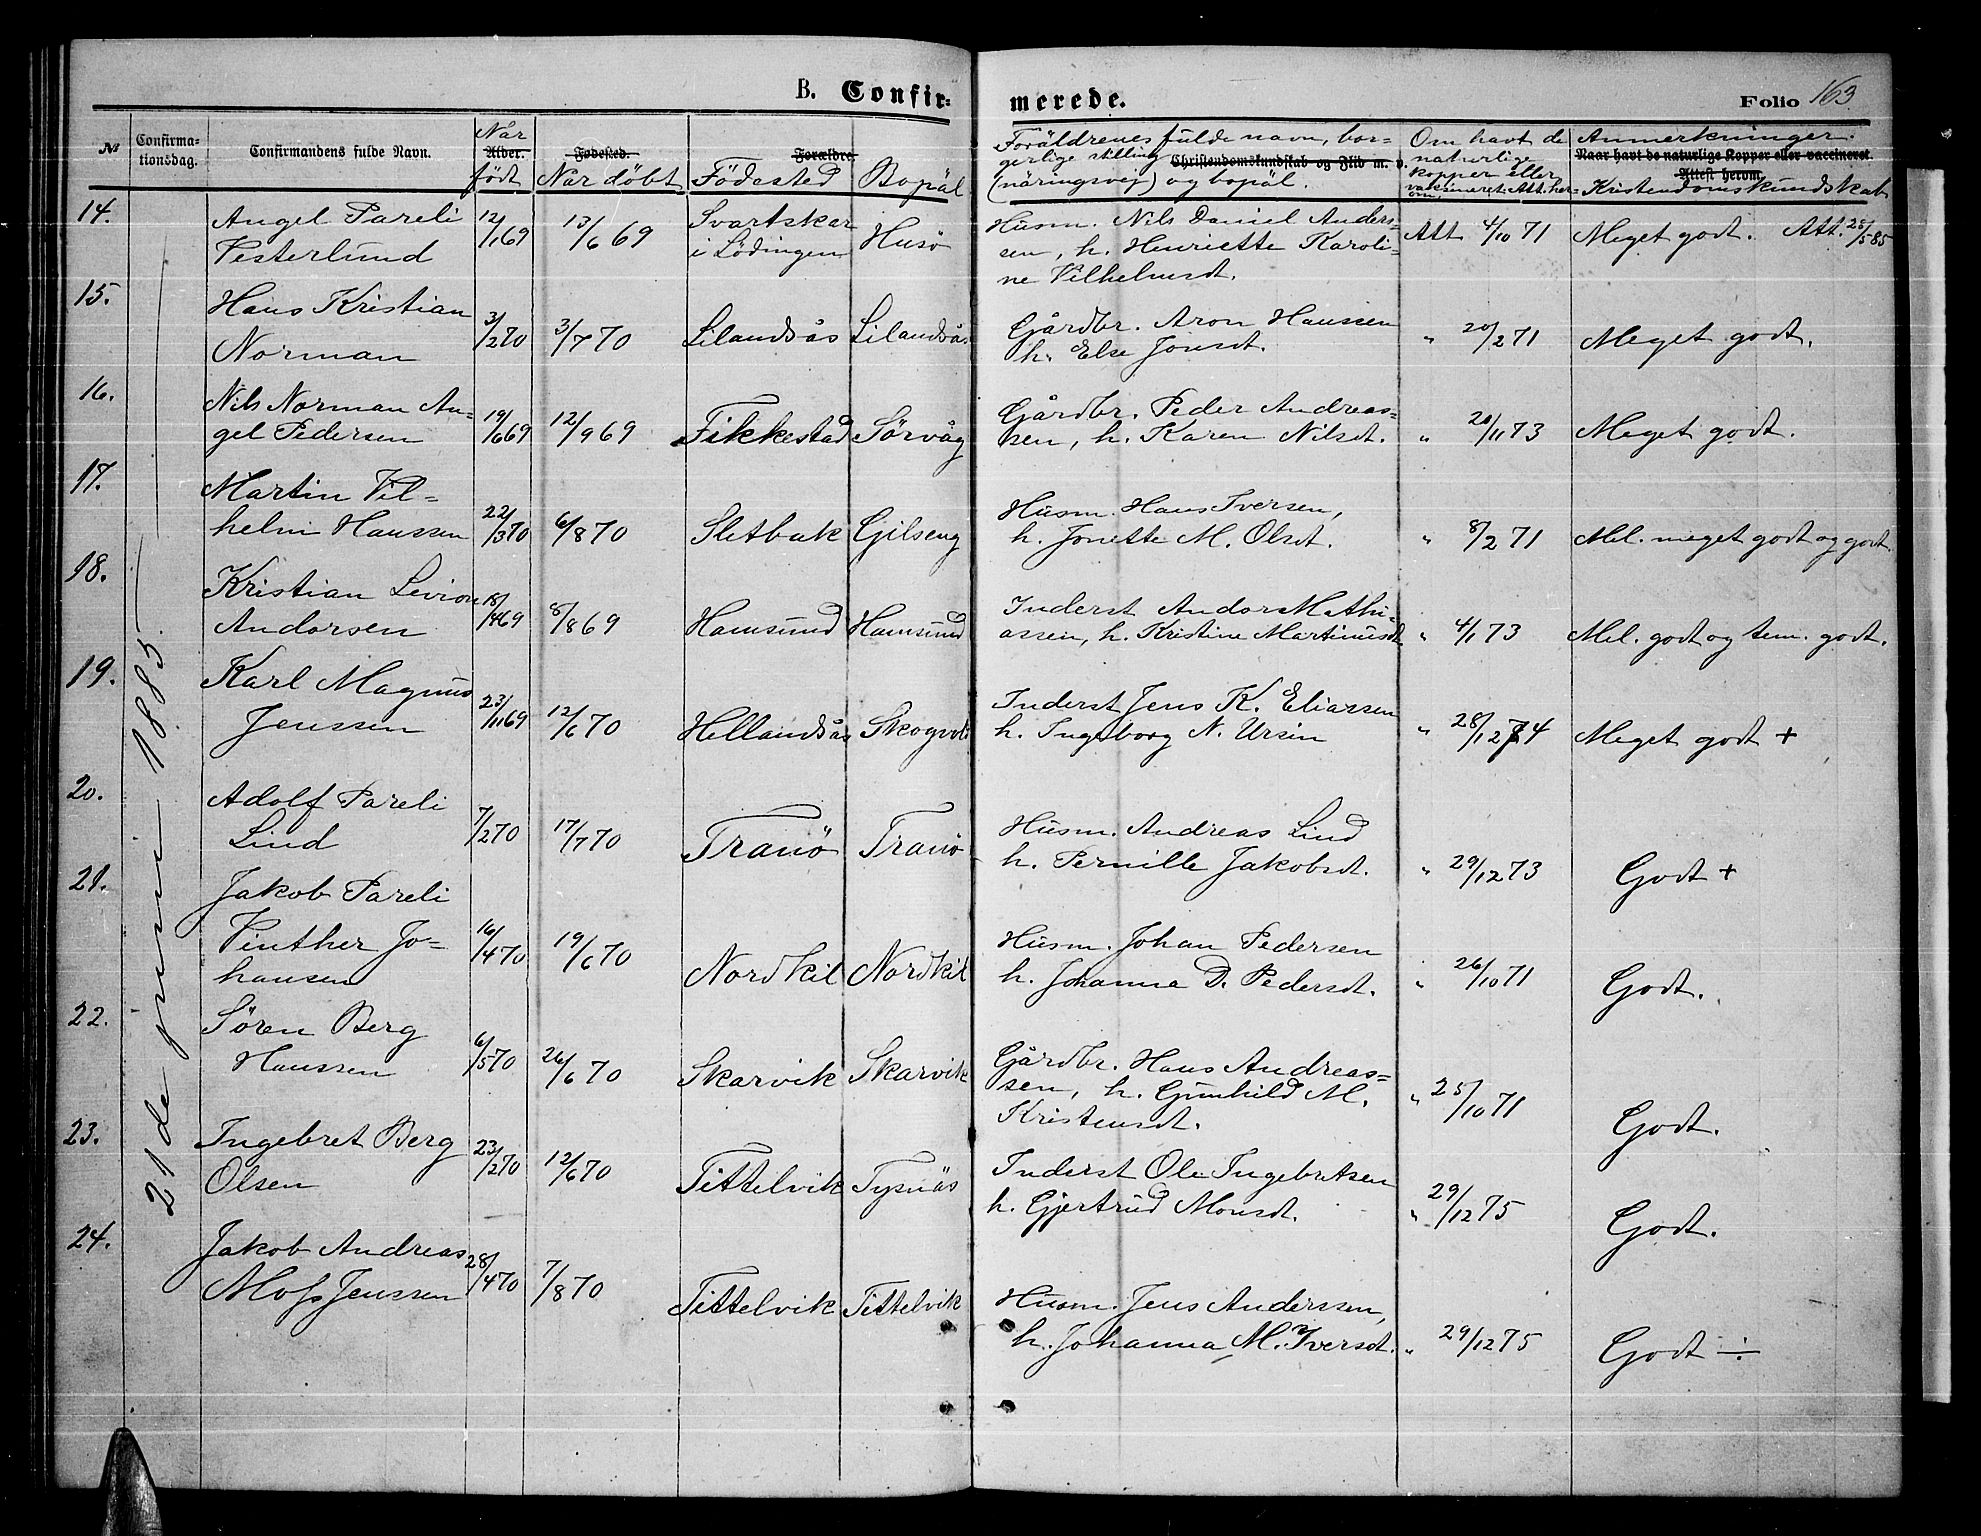 B. Confir-
merede.
Folio 163
№
Confirma-
tionsdag.
Confirmandens fulde Navn.
Når
Alder.
født
Fødested.
Når döbt
Forældre
Födested
Bopäl
Foräldrenes fulde navn, bor-
gerlige stilling Christendomskundskab og Flid m. v.
(näringsvej) og bopäl.
Om havt de
naturlige
kopper eller
vaksineret. Att. her-
om.
Anmerkninger.
Naar havt de naturlige Kopper eller vaccineret.
Attest herom.
Kristendomskundskab
21de juni 1885.
14.
Angel Pareli
Vesterlund
12/1 69
13/6 69
Svartskar
i Lödingen
Husö
Husm. Nils Daniel Anders-
sen, h. Henriette Karoli-
ne Vilhelmsdt.
Att 4/10 71
Meget godt. Att. 25/5 85
15.
Hans Kristian
Norman
3/2 70
3/7 70
Lilandsås
Lilandsås
Gårdbr. Aron Hanssen
h. Else Jonsdt.
" 20/2 71
Meget godt.
16.
Nils Norman An-
gel Pedersen
19/6 69
12/9 69
Fikkestad
Sørvåg
Gårdbr. Peder Andreas-
sen, h. Karen Nilsdt.
" 20/11 73
Meget godt.
17.
Martin Vil-
helm Hanssen
22/3 70
6/8 70
Sletbak
Gilseng
Husm. Hans Iversen,
h. Jonette M. Olsdt.
" 8/2 71
Mel. meget godt og godt.
18.
Kristian Levion
Andorsen
18/4 69
8/8 69
Hamsund
Hamsund
Inderst Andor Mathi-
assen, h. Kristine Martinusdt
" 4/1 73
Mel. godt og tem. godt.
19.
Karl Magnus
Jenssen
23/11 69
12/6 70
Hellandsås
Skogvold
Inderst Jens K. Eliassen
h. Ingeborg N. Ursin
" 28/12 74
Meget godt +
20.
Adolf Pareli
Lind
7/2 70
17/7 70
Tranö
Tranö
Husm. Andreas Lind
h. Pernille Jakobsdt.
" 29/12 73
Godt +
21.
Jakob Pareli
Vinther Jo-
hansen
16/4 70
19/6 70
Nordkil
Nordkil
Husm. Johan Pedersen
h. Johanna D. Pedersdt.
" 26/10 71
Godt.
22.
Søren Berg
Hanssen
6/5 70
26/6 70
Skarvik
Skarvik
Gårdbr. Hans Andreas-
sen, h. Gunhild M.
Kristensdt.
" 25/10 71
Godt.
23.
Ingebret Berg
Olsen
23/2 70
12/6 70
Tittelvik
Tysnäs
Inderst Ole Ingebretsen
h. Gjertrud Monsdt.
" 29/12 75
Godt.
24.
Jakob Andreas
Moss Jenssen
28/4 70
7/8 70
Tittelvik
Tittelvik
Husm. Jens Anderssen,
h. Johanna M. Iversdt.
" 29/12 75
Godt ÷